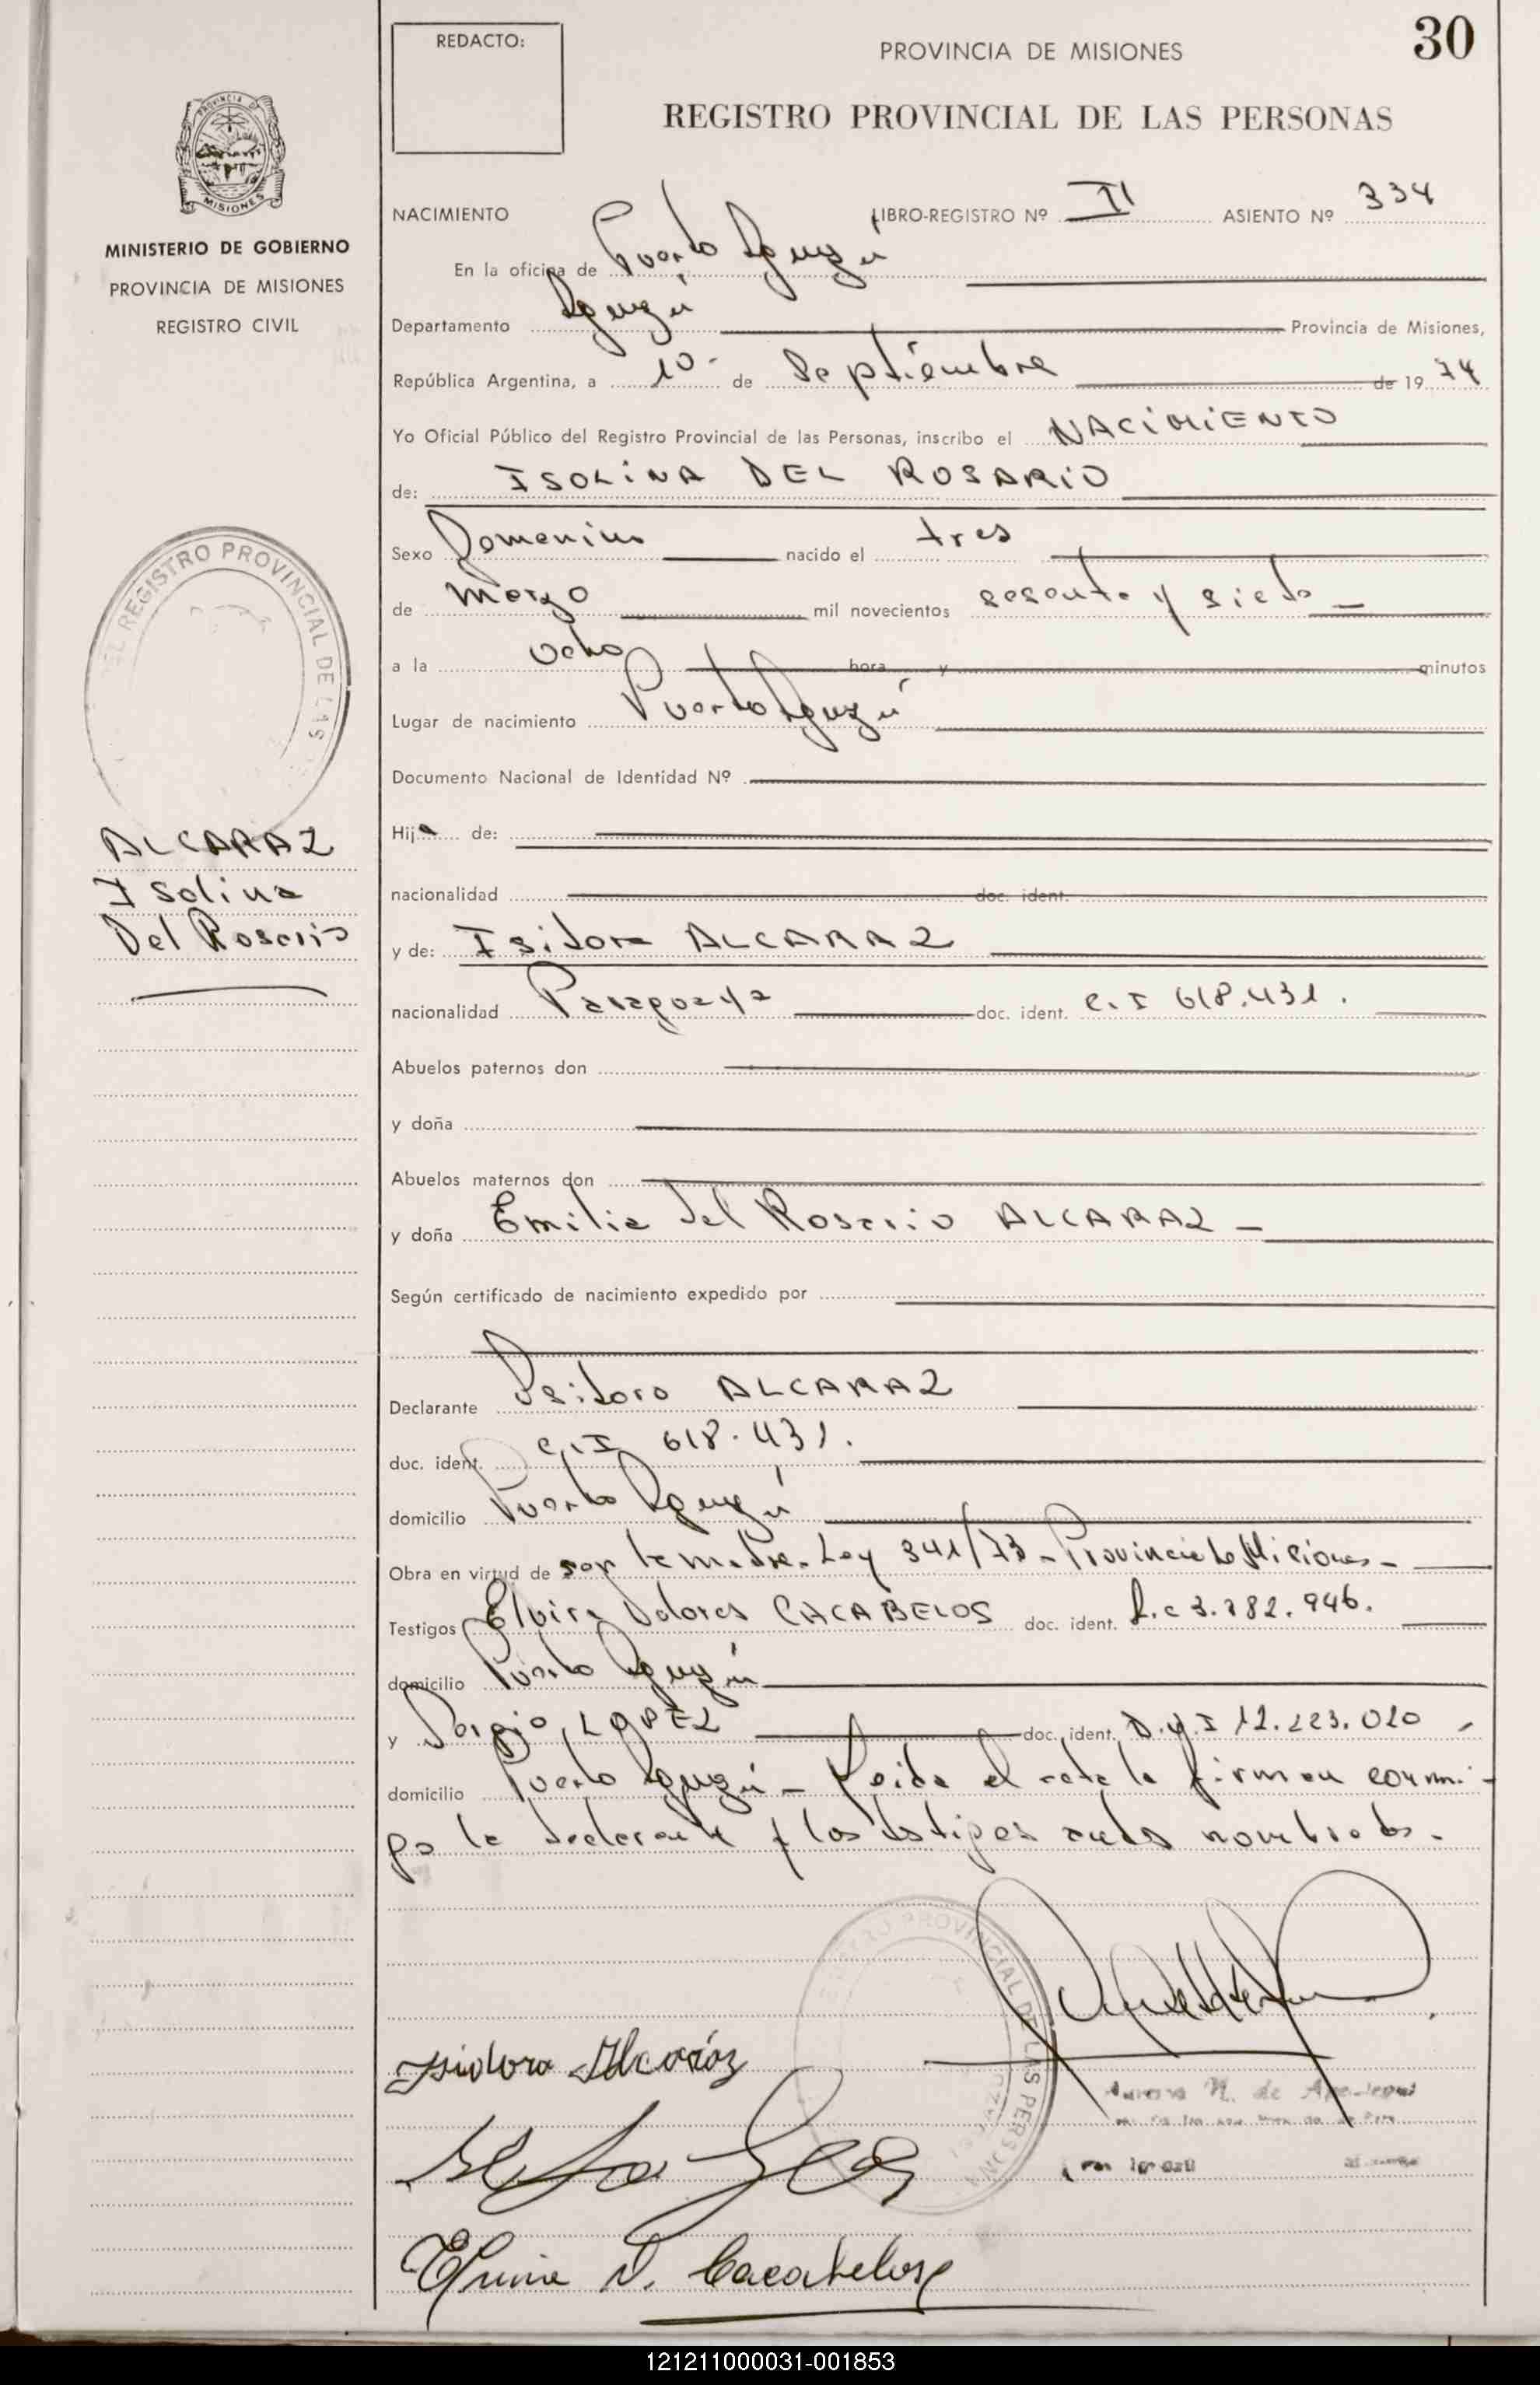 REDACTO:
PROVINCIA DE MISIONES
30
REGISTRO PROVINCIAL DE LAS PERSONAS
PROVINCIA DE
MISIONES
MINISTERIO DE GOBIERNO
PROVINCIA DE MISIONES
REGISTRO CIVIL
NACIMIENTO LIBRO-REGISTRO Nº II ASIENTO Nº 334
En la oficina de Puerto Iguazú
Departamento Iguazú Provincia de Misiones,
República Argentina, a 10- de Septiembre de 19 74
Yo Oficial Público del Registro Provincial de las Personas, inscribo el NACIMIENTO
de: ISOLINA DEL ROSARIO
Sexo Femenino nacido el tres
de Marzo mil novecientos sesenta y siete
a la Ocho hora y minutos
Lugar de nacimiento Puerto Iguazú
Documento Nacional de Identidad Nº
Hija de:
nacionalidad doc. ident.
y de: Isidora ALCARAZ
nacionalidad Paraguaya doc. ident. C. I 618.431.
Abuelos paternos don
y doña
Abuelos maternos don
y doña Emilia del Rosario ALCARAZ -
Según certificado de nacimiento expedido por
Declarante Isidora ALCARAZ
doc. ident. C.I 618.431.
domicilio Puerto Iguazú
Obra en virtud de ser la madre. Ley 341/73 - Provincia de Misiones -
Testigos Elvira Dolores CACABELOS doc. ident. L.C 3.282.946.
domicilio Puerto Iguazú
y Sergio LOPEZ doc. ident. D.N.I 12.223.020
domicilio Puerto Iguazú - Leida el acta la firman conmi-
go la declarante y los testigos nombrados.
EL REGISTRO PROVINCIAL DE LAS
ALCARAZ
Isolina
Del Rosario
REGISTRO PROVINCIAL DE LAS PERSONAS
Isidora Alcaráz
Elvira D. Cacabelos
121211000031-001853